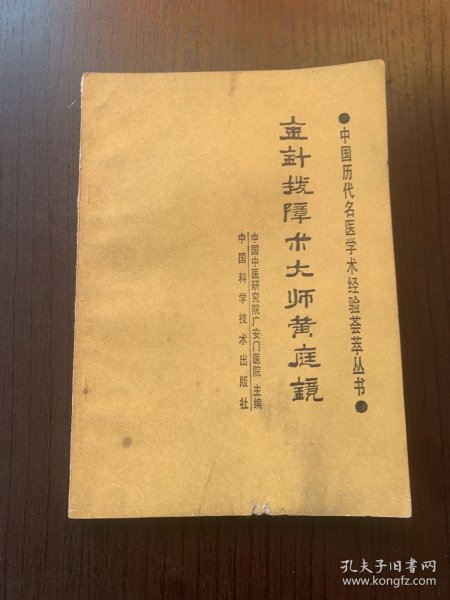 ●中国历代名医学术经验荟萃丛书●
金针拨障术大师黄庭镜
中国中医研究院广安门医院 主编
中国科学技术出版社
孔夫子旧书网
www.kongfz.com